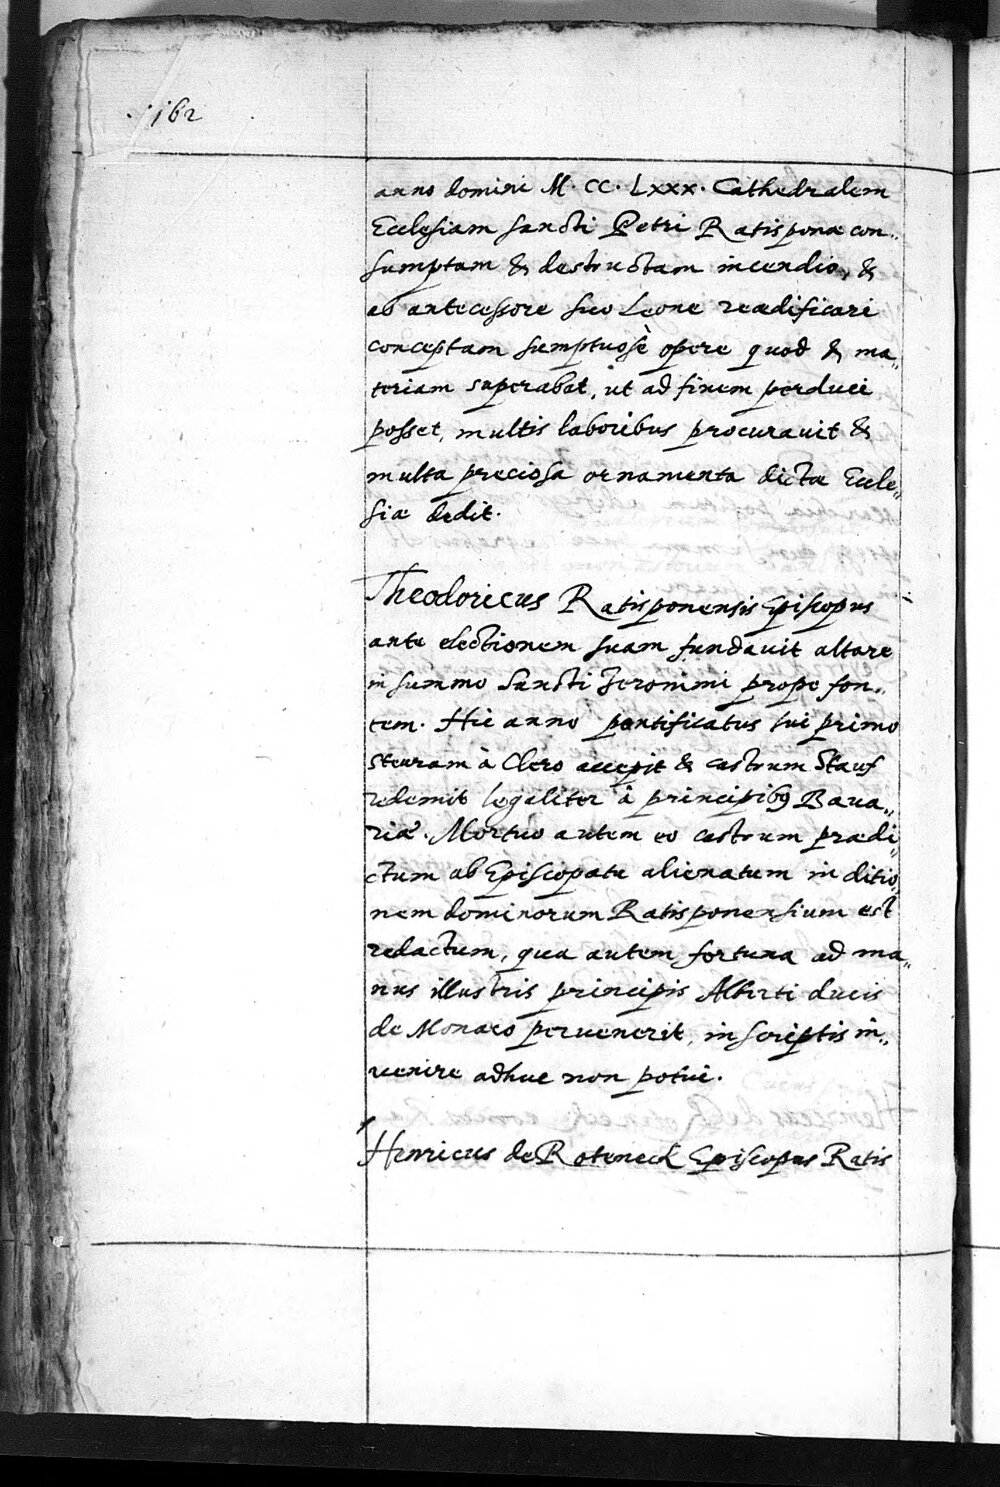 162
anno domini M. CC. Lxxx. Cathedralem
Ecclesiam sancti Petri Ratisponæ con„
sumptam & destructam incendio, &
ab antecessore suo Leone reædificari
conceptam sumptuosè opere quod & ma„
teriam superabat, ut ad finem perduci
posset, multis laboribus procurauit &
multa preciosa ornamenta dictæ Eccle„
siæ dedit.
Theodoricus Ratisponensis Episcopus
ante electionem suam fundauit altare
in summo Sancti Jeronimi prope fon„
tem. Hic anno pontificatus sui primo
steuram à Clero accepit & castrum Stauf
redemit legaliter à principibꝰ Baua„
riæ. Mortuo autem eo castrum prædi„
ctum ab Episcopatu alienatum in ditio„
nem dominorum Ratisponensium est
redactum, qua autem fortuna ad ma„
nus illustris principis Alberti ducis
de Monaco peruenerit, in scriptis in„
uenire adhuc non potui.
Henricus de Roteneck Episcopus Ratis